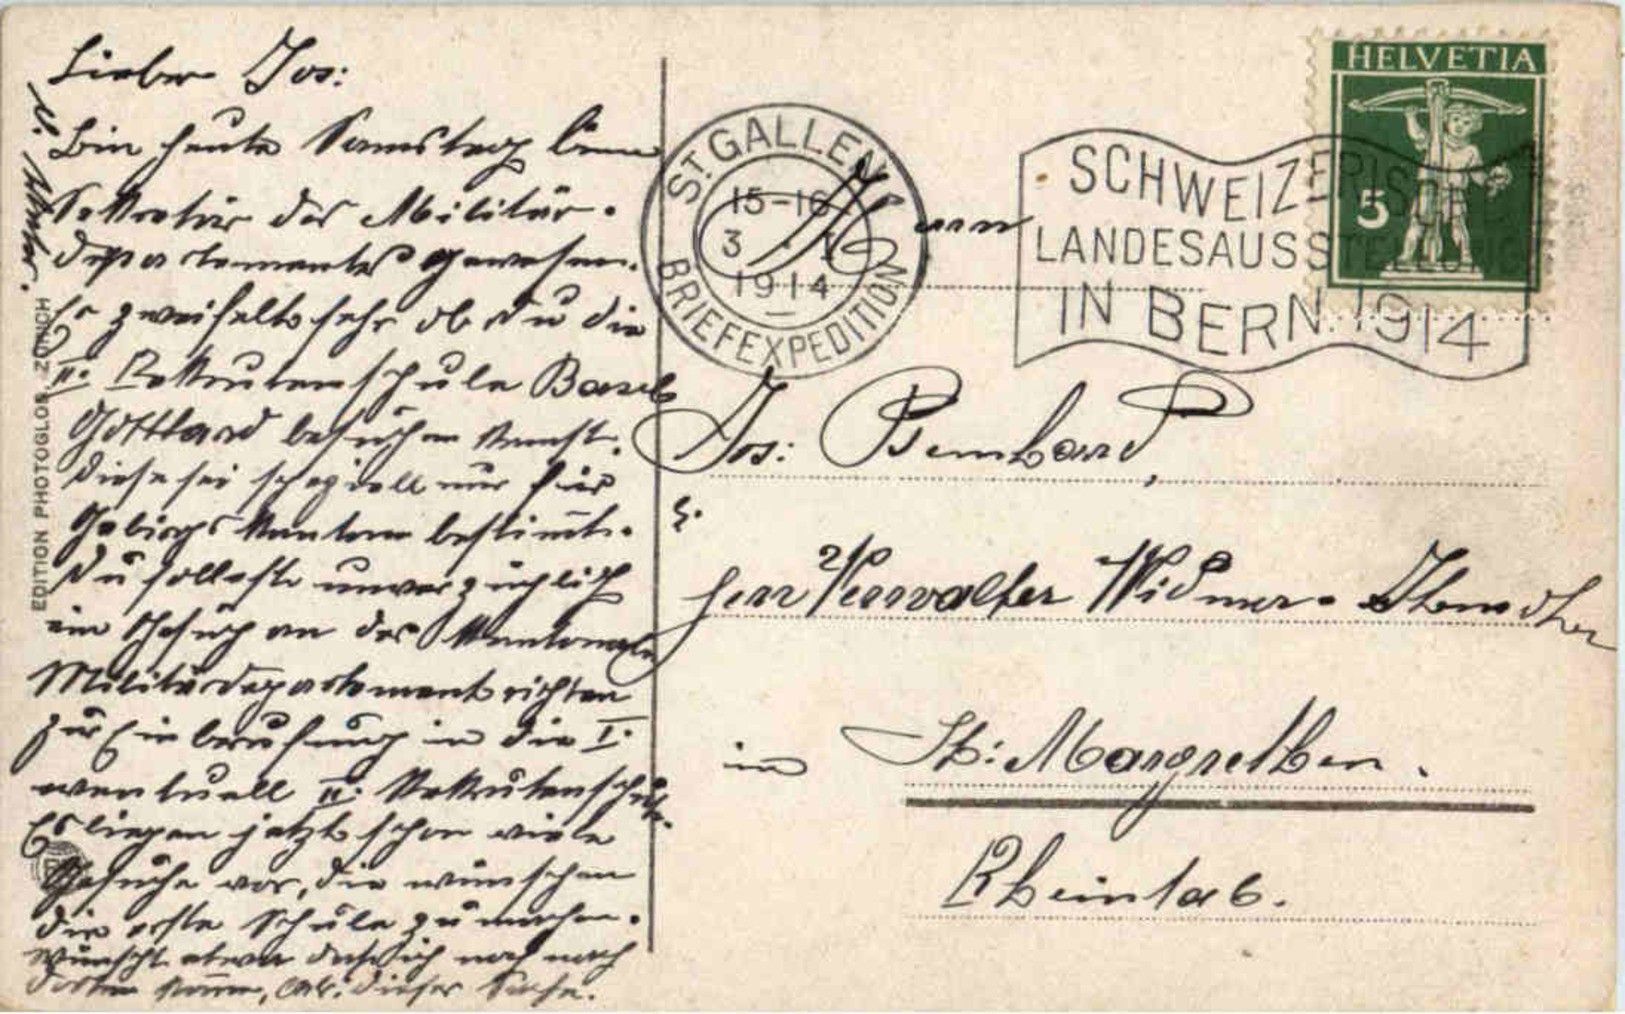 Lieber Jos:
Bin heute Samstag beim
Sekretär des Militär-
departementes gewesen.
Er zweifelt sehr ob du die
II. Rekrutenschule Basel
Gotthard besuchen kannst.
Diese sei speziell nur für
Gebirgs Kantone bestimt.
Du solltest unverzüglich
ein Gesuch an das Kantonale
Militärdepartement richten
zur Einberufung in die I.
eventuell II. Rekrutenschule.
Es liegen jetzt schon viele
Gesuche vor, die wünschen
die erste Schule zu machen.
Wünscht etwa dass ich noch nach
dorten komme, dieser Sache.
EDITION PHOTOGLOB ZÜRICH
ST GALLEN
15-16
3
1914
BRIEFEXPEDITION
SCHWEIZERISCHE
LANDESAUSSTELLUNG
IN BERN 1914
HELVETIA
5
Herrn
Jos: Bernhard,
Herr Verwalter Widmer-
in St: Margrethen.
Rheintal.